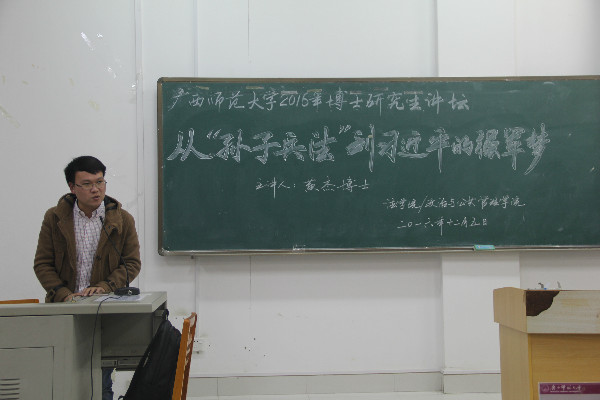 广西师范大学2016年博士研究生讲坛
从“孙子兵法”到习近平的强军梦
主讲人：黄杰博士
法学院/政治与公共管理学院
二〇一六年十二月五日